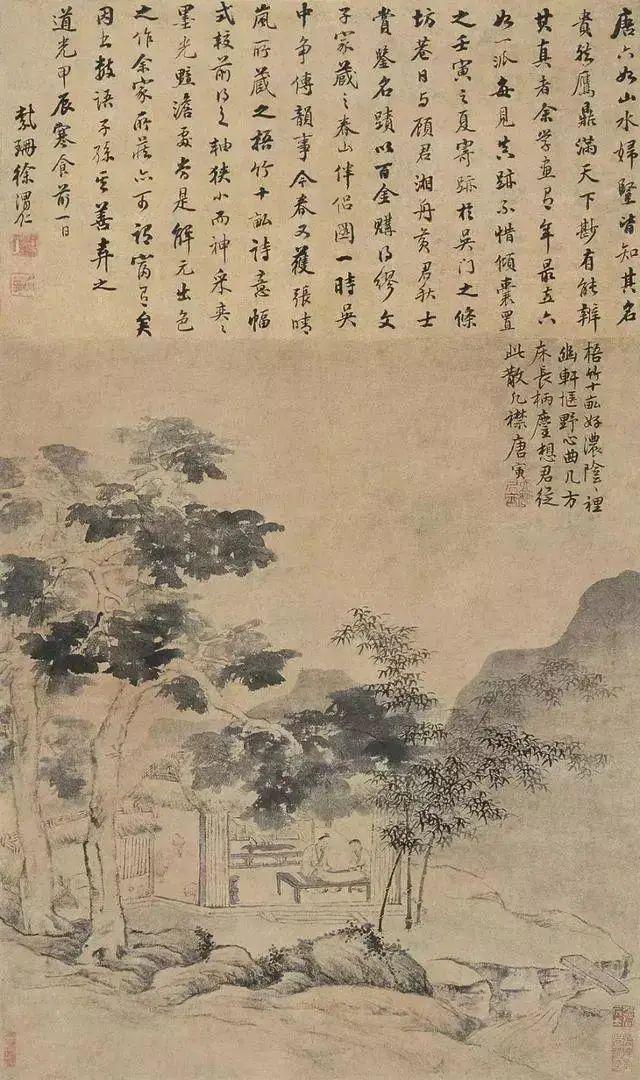 唐六如山水婦豎皆知其名
貴然鷹鼎滿天下尠有能辨
其真者余学畫有年最喜六
如一派每見真跡不惜傾囊置
之壬寅之夏寄跡於吳門之條
坊巷日与顧君湘舟黃君秋士
賞鑒名蹟以百金購得繆文
子家藏之春山伴侶圖一時吳
中争傳韻事今春又獲張晴
嵐所藏之梧竹十畝詩意幅
式較前得之軸狹小而神采奕〻
墨光黯澹要皆是解元出色
之作余家所藏亦可謂富有矣
因書數語子孫其善弆之
道光甲辰寒食前一日
紫珊徐渭仁
梧竹十畝好濃陰〻裡
幽軒愜野心曲几方
床長柄麈想君従
此散凡襟唐寅